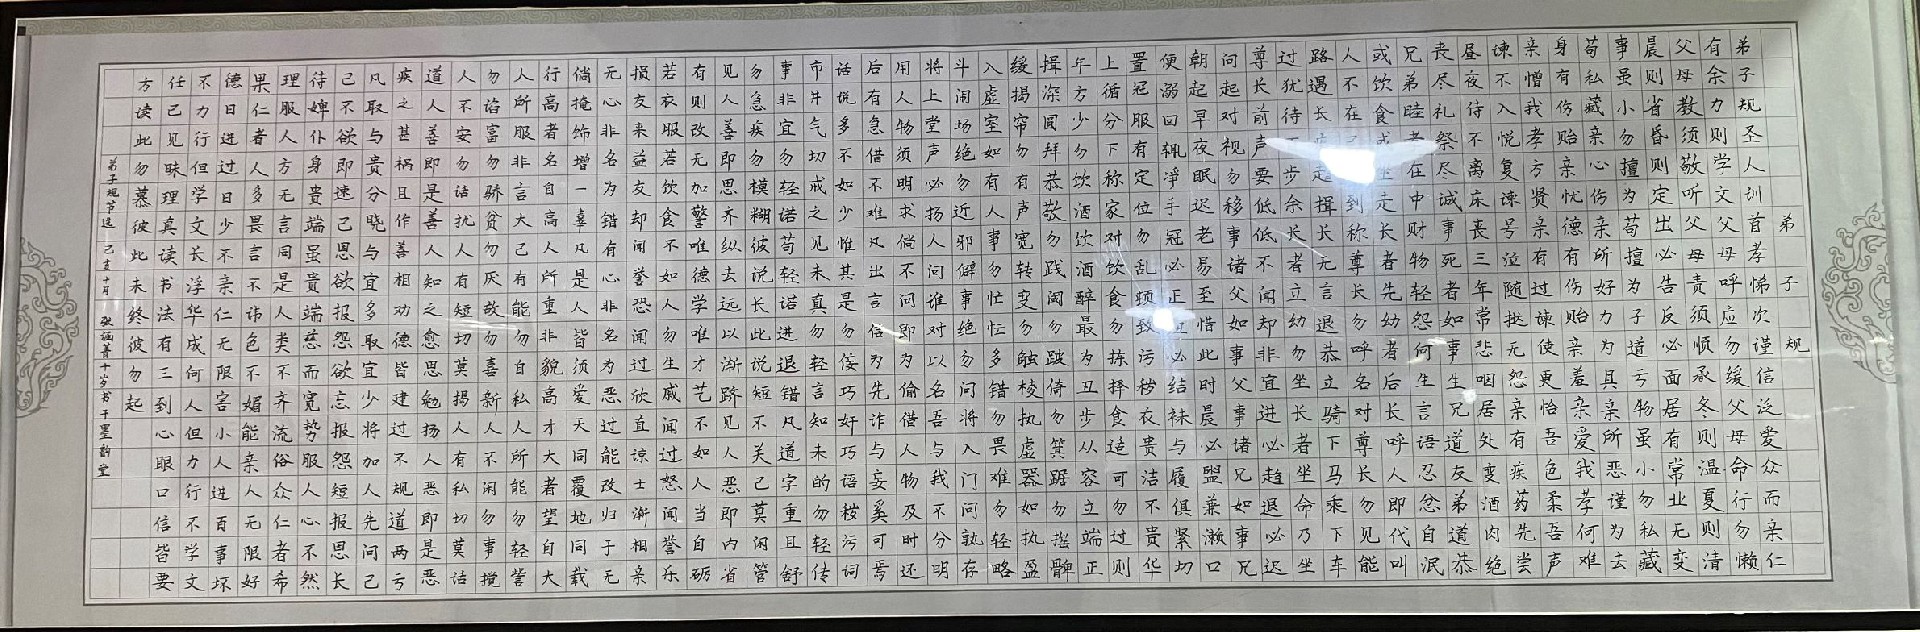 弟子规
弟子规圣人训首孝悌次谨信泛爱众而亲仁
有余力则学文父母呼应勿缓父母命行勿懒
父母教须敬听父母责须顺承冬则温夏则清
晨则省昏则定出必告反必面居有常业无变
事虽小勿擅为苟擅为子道亏物虽小勿私藏
苟私藏亲心伤亲所好力为具亲所恶谨为去
身有伤贻亲忧德有伤贻亲羞亲爱我孝何难
亲憎我孝方贤亲有过谏使更怡吾色柔吾声
谏不入悦复谏号泣随挞无怨亲有疾药先尝
昼夜侍不离床丧三年常悲咽居处变酒肉绝
丧尽礼祭尽诚事死者如事生兄道友弟道恭
兄弟睦孝在中财物轻怨何生言语忍忿自泯
或饮食或坐走长者先幼者后长呼人即代叫
人不在己即到称尊长勿呼名对尊长勿见能
路遇长疾趋揖长无言退恭立骑下马乘下车
过犹待百步余长者立幼勿坐长者坐命乃坐
尊长前声要低低不闻却非宜进必趋退必迟
问起对视勿移事诸父如事父事诸兄如事兄
朝起早夜眠迟老易至惜此时晨必盥兼漱口
便溺回辄净手冠必正纽必结袜与履俱紧切
置冠服有定位勿乱顿致污秽衣贵洁不贵华
上循分下称家对饮食勿拣择食适可勿过则
年方少勿饮酒饮酒醉最为丑步从容立端正
揖深圆拜恭敬勿践阈勿跛倚勿箕踞勿摇髀
缓揭帘勿有声宽转变勿触棱执虚器如执盈
入虚室如有人事勿忙忙多错勿畏难勿轻略
斗闹场绝勿近邪僻事绝勿问将入门问孰存
将上堂声必扬人问谁对以名吾与我不分明
用人物须明求倘不问即为偷借人物及时还
后有急借不难凡出言信为先诈与妄奚可焉
话说多不如少惟其是勿佞巧奸巧语秽污词
市井气切戒之见未真勿轻言知未的勿轻传
事非宜勿轻诺苟轻诺进退错凡道字重且舒
勿急疾勿模糊彼说长此说短不关己莫闲管
见人善即思齐纵去远以渐跻见人恶即内省
有则改无加警唯德学唯才艺不如人当自砺
若衣服若饮食不如人勿生戚闻过怒闻誉乐
损友来益友却闻誉恐闻过欣直谅士渐相亲
无心非名为错有心非名为恶过能改归于无
倘掩饰增一辜凡是人皆须爱天同覆地同载
行高者名自高人所重非貌高才大者望自大
人所服非言大己有能勿自私人所能勿轻訾
勿谄富勿骄贫勿厌故勿喜新人不闲勿事搅
人不安勿话扰人有短切莫揭人有私切莫说
道人善即是善人知之愈思勉扬人恶即是恶
疾之甚祸且作善相劝德皆建过不规道两亏
凡取与贵分晓与宜多取宜少将加人先问己
己不欲即速己恩欲报怨欲忘报怨短报恩长
待婢仆身贵端虽贵端慈而宽势服人心不然
理服人方无言同是人类不齐流俗众仁者希
果仁者人多畏言不讳色不媚能亲仁无限好
德日进过日少不亲仁无限害小人进百事坏
不力行但学文长浮华成何人但力行不学文
任己见昧理真读书法有三到心眼口信皆要
方读此勿慕彼此未终彼勿起
弟子规节选 己亥十月 张涵菁十岁书于墨韵堂